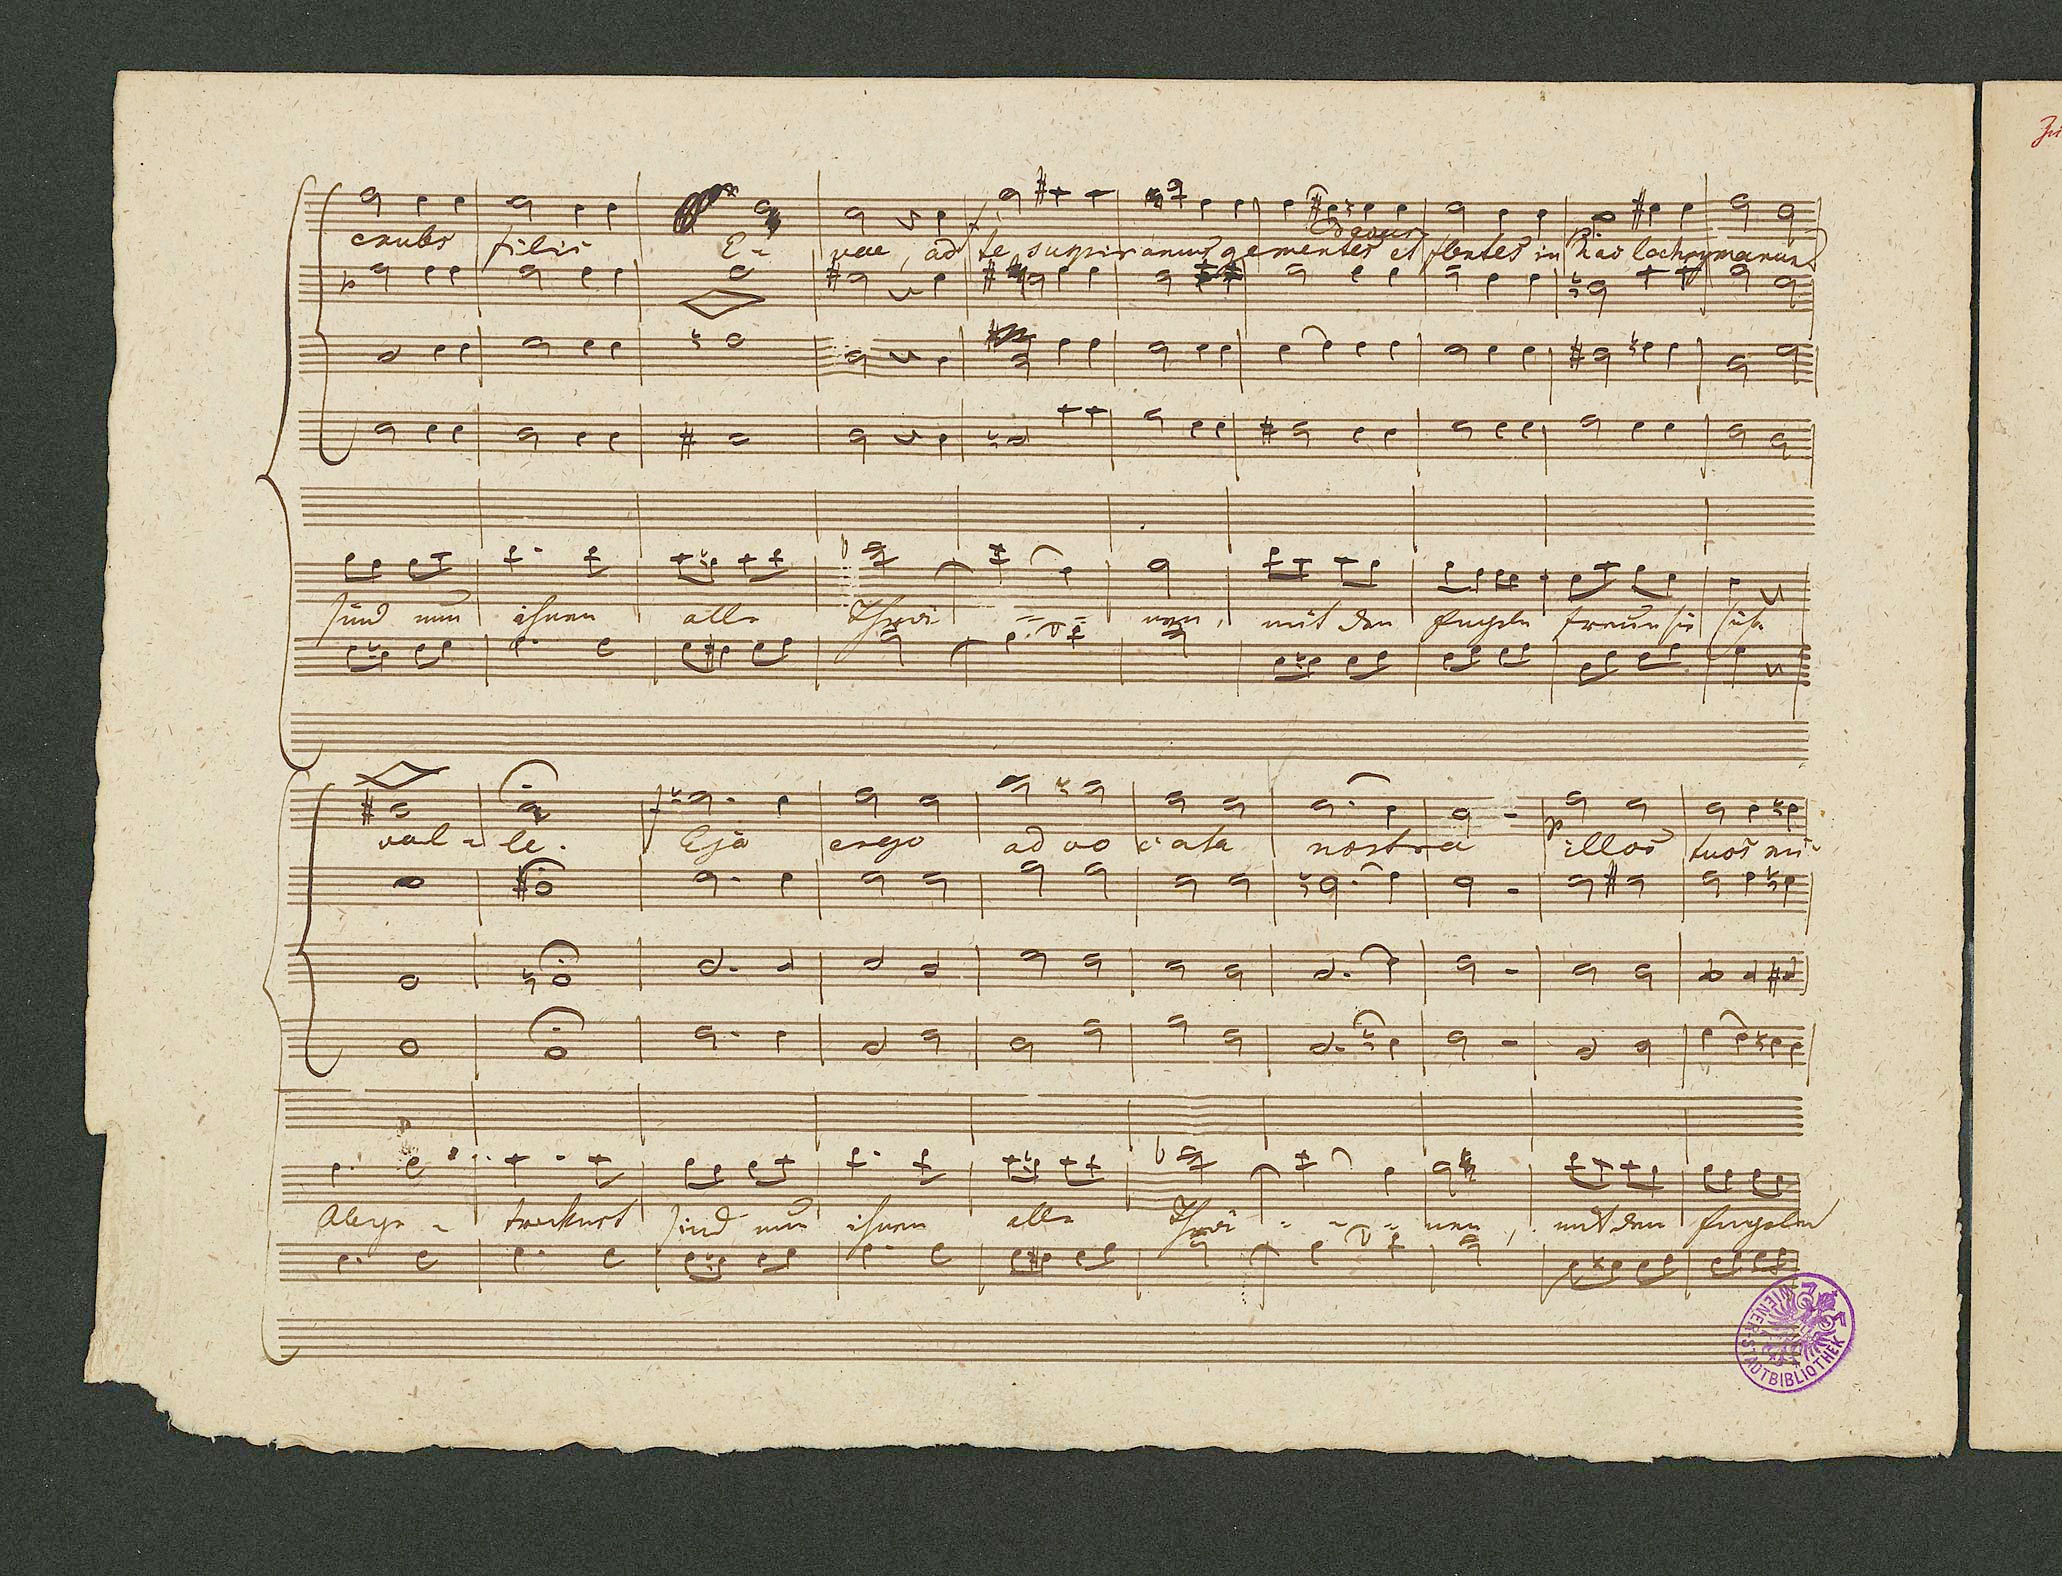 exules filii E - vae, ad te suspiramus gementes et flentes in hac lachrymarum
decresc
p
f
p
sind nun ihnen alle Thrä - - - nen, mit den Engeln freun sie sich
val - le. Eja ergo advocata nostra illos tuos mi-
f
p
Abge - trocknet sind nun ihnen alle Thrä - - - nen, mit den Engeln
WIENER STADTBIBLIOTHEK